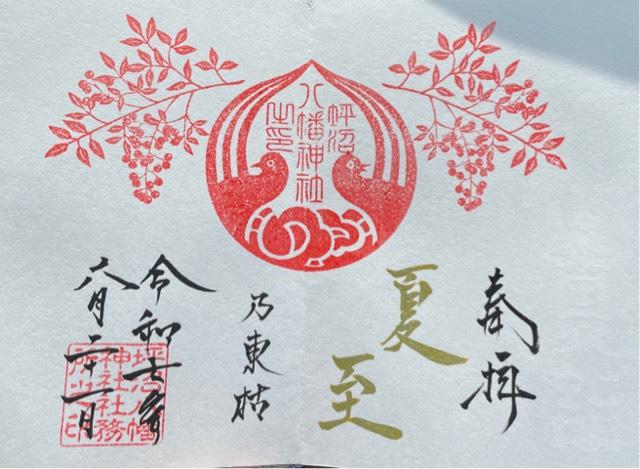 坪沼
八幡神社
之印
奉拝
夏至
乃東枯
令和七年
六月二十一日
坪沼八幡
神社社務
所之印